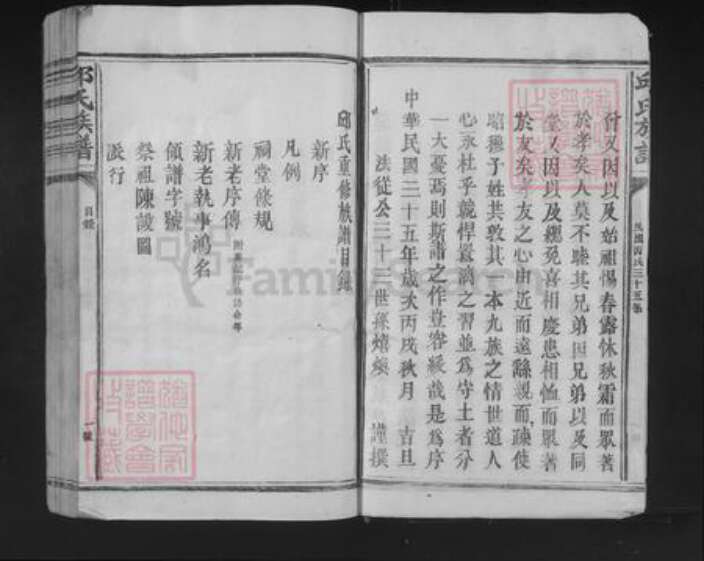 邱氏族譜
民國丙戌三十五年
付又因以及始祖惕春露怵秋霜而眾著
於孝矣人莫不睦其兄弟因兄弟以及同
堂又因以及親免喜相慶患相恤而眾著
於友矣孝友之心由近而遠繇親而疎使
昭穆子姓共敦其一本九族之情世道人
心永杜乎競悍囂漓之習並爲守土者分
一大憂焉則斯譜之作豈容緩哉是爲序
中華民國三十五年歲次丙戌秋月 吉旦
法從公三十二世孫 謹撰
邱氏重修族譜目錄
新序
凡例
祠堂條規
新老序傳
新老執事鴻名
領譜字號
祭祖陳設圖
派行
邱氏族譜
目錄
一號
FamilySearch